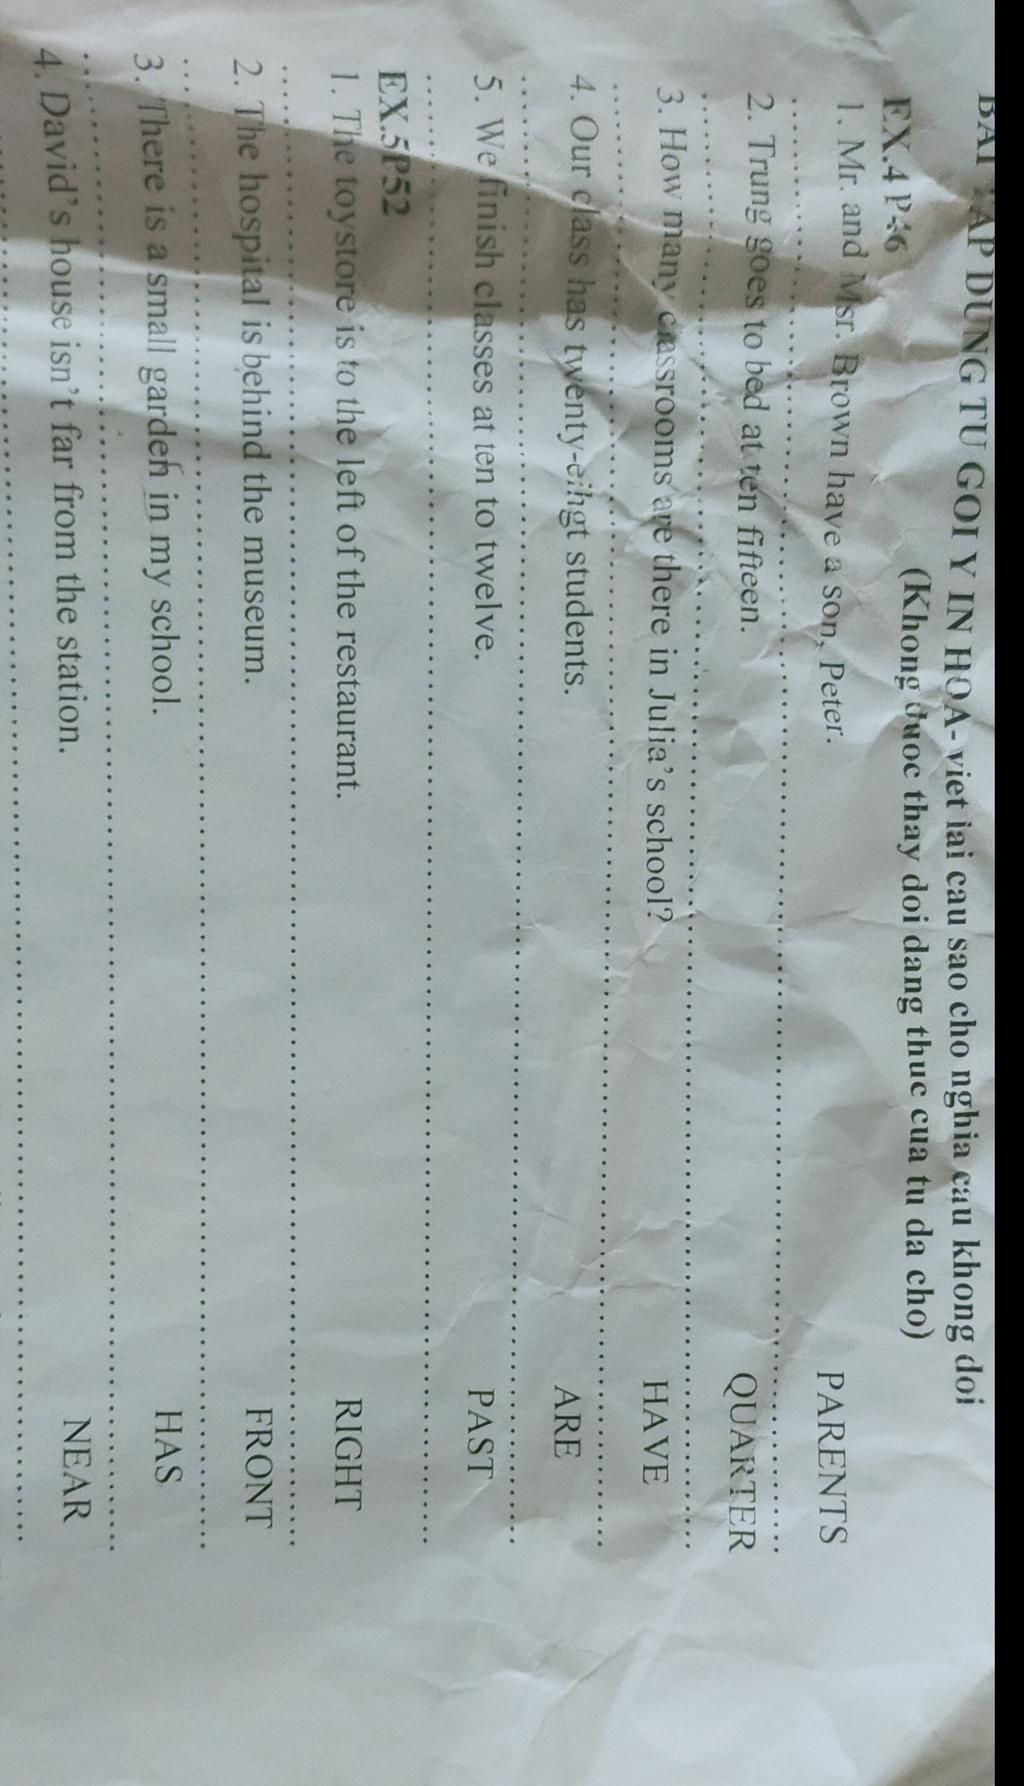 BAI TAP DUNG TU GOI Y IN HOA- viet lai cau sao cho nghia cau khong doi
(Khong duoc thay doi dang thuc cua tu da cho)
EX.4 P46
1. Mr. and Msr. Brown have a son, Peter. PARENTS
2. Trung goes to bed at ten fifteen. QUARTER
3. How many classrooms are there in Julia's school? HAVE
4. Our class has twenty-eihgt students. ARE
5. We finish classes at ten to twelve. PAST
EX.5P52
1. The toystore is to the left of the restaurant. RIGHT
2. The hospital is behind the museum. FRONT
3. There is a small garden in my school. HAS
4. David's house isn't far from the station. NEAR